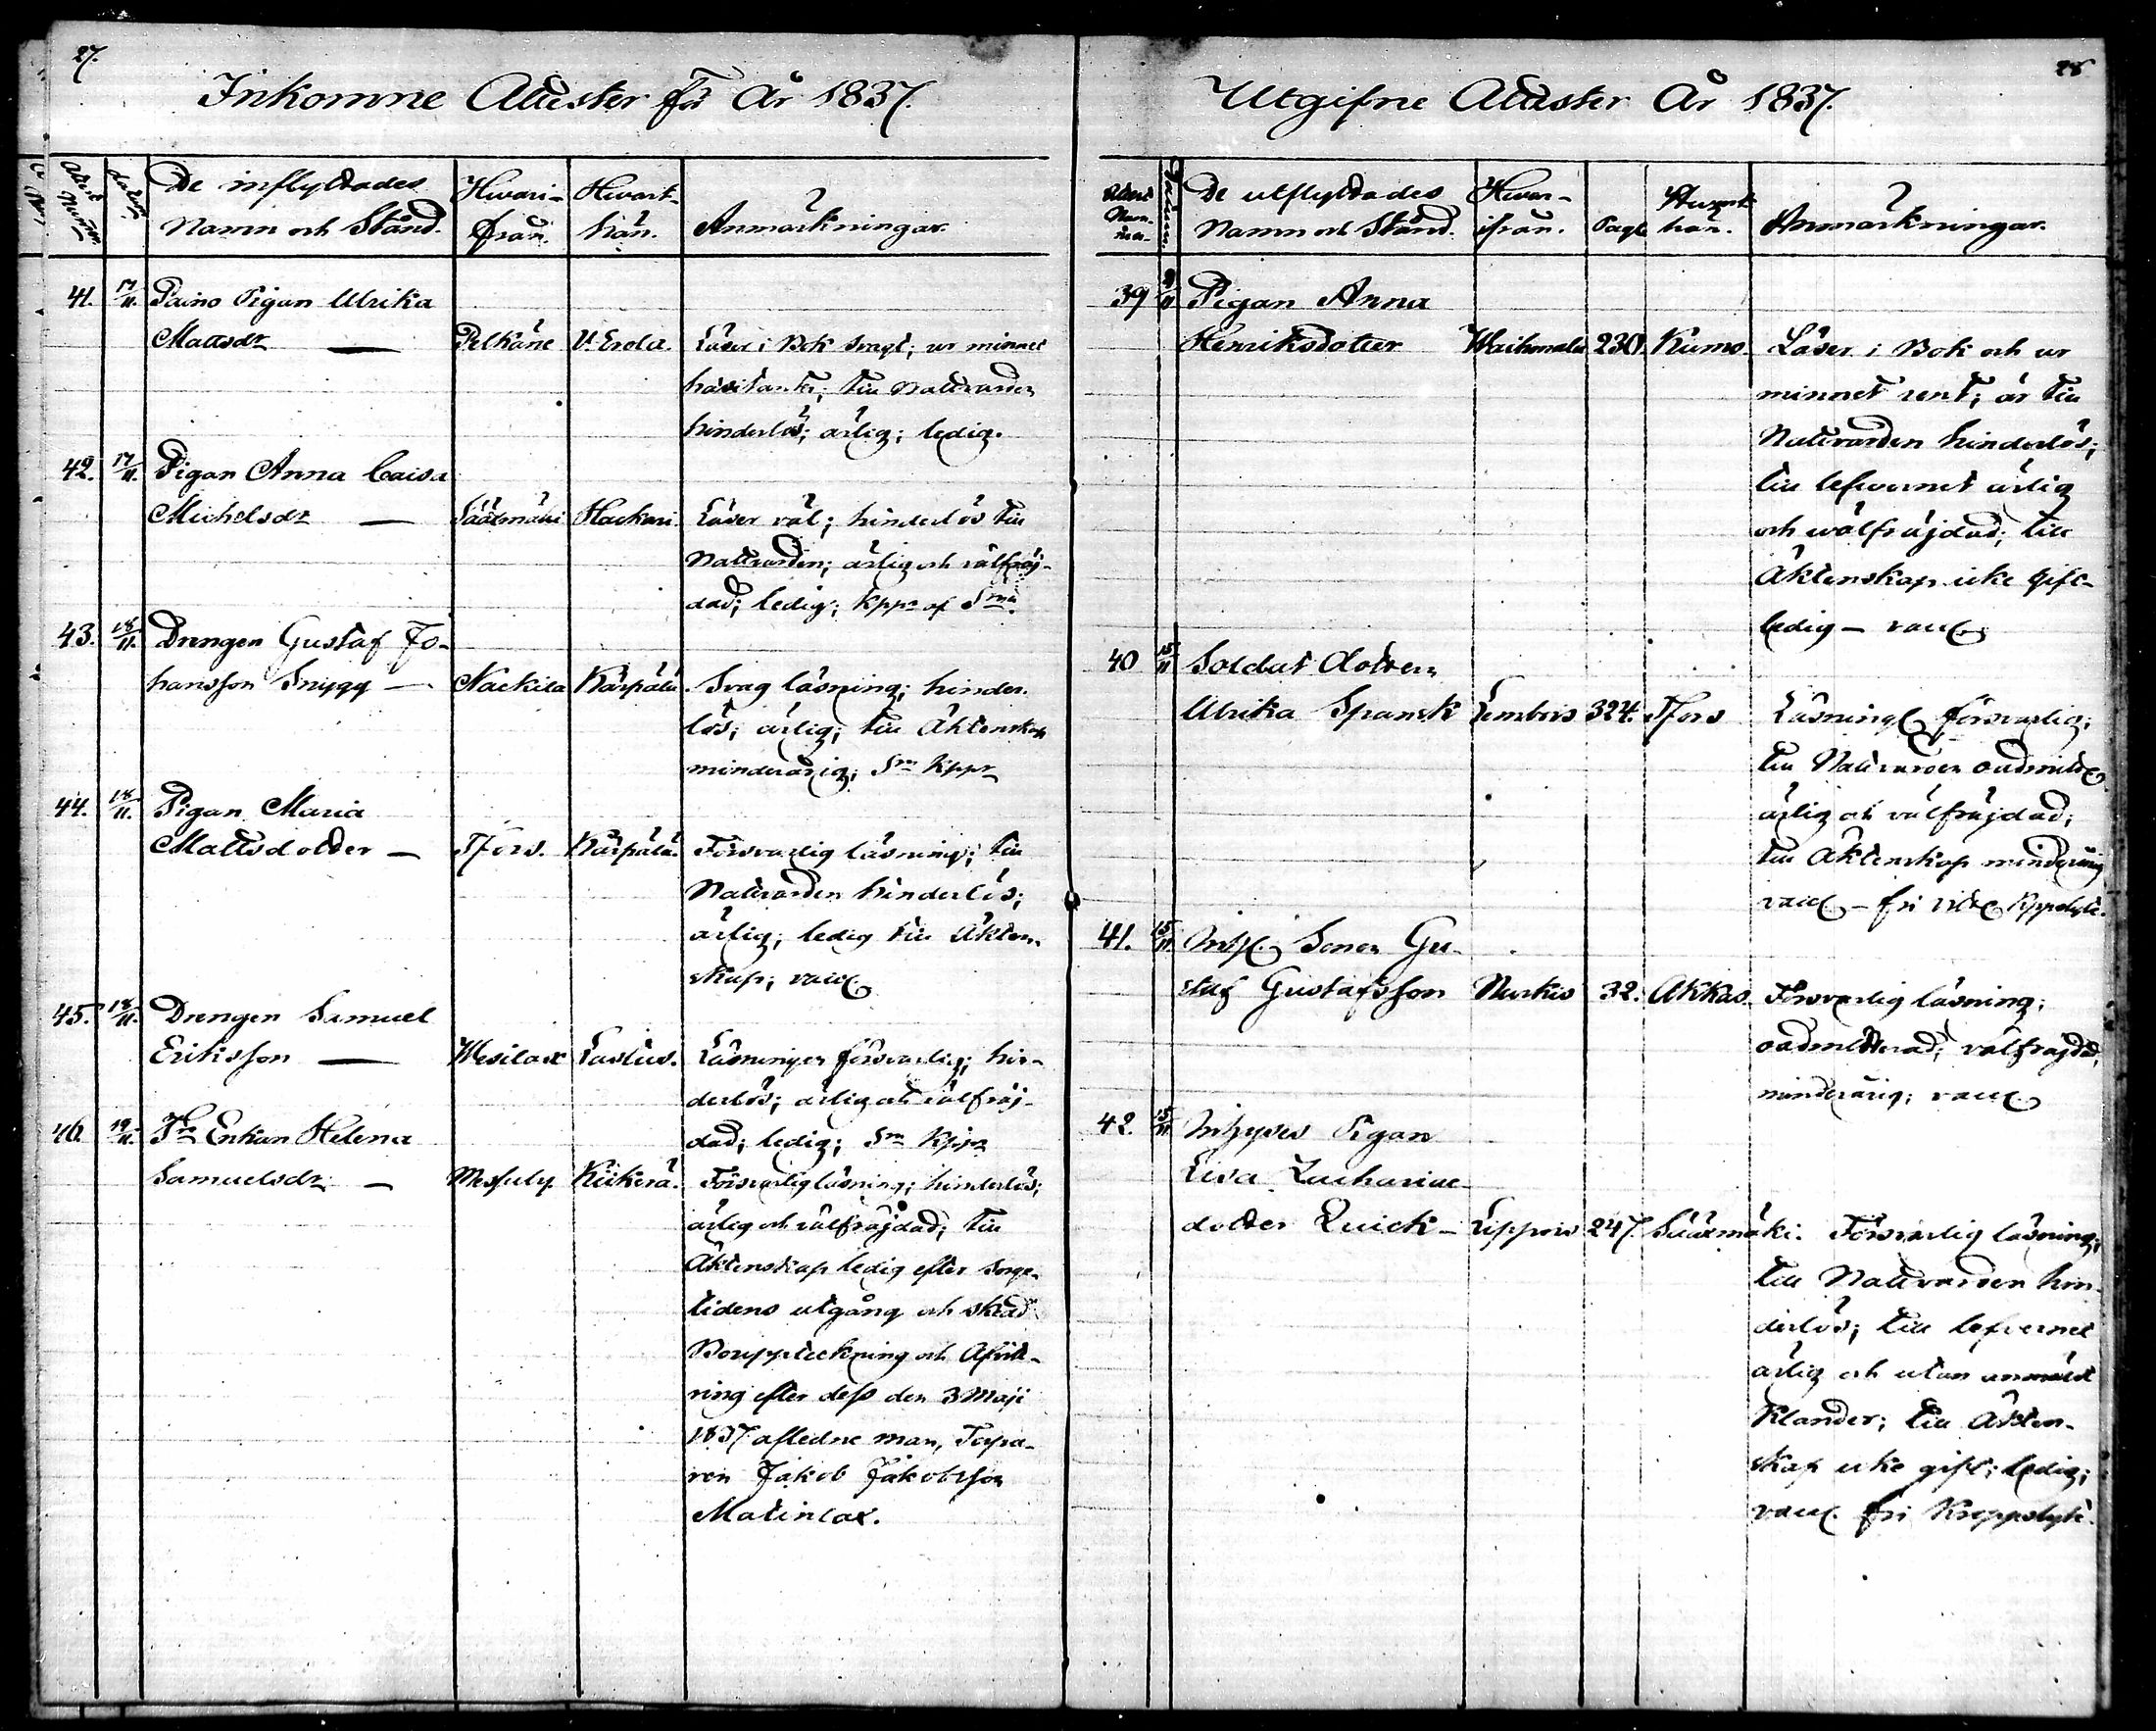 27.
Inkomne Attester för År 1837.
Attest Nummer
datum
De inflyttades Namn och Stånd.
Hwari-från.
Hwart-hän.
Anmärkningar.
41. 17/11. Paino Pigan Ulrika
Mattsdr — Pelkäne V. Erola. Läser i Bok svagt; ur minnet
häsitante; till Nattvarden
hinderlös; ärlig; ledig.
42. 17/11. Pigan Anna Caisa
Michelsdr — Sääxmäki Hackari. Läser väl; hinderlös till
Nattvarden; ärlig och välfräj-
dad; ledig; kppr af Sma.
43. 18/11. Drengen Gustaf Jo-
hansson Snygg — Nackila Kärpälä. Svag läsning; hinder-
lös; ärlig; till Äktenskap
minderårig; Sm kppr
44. 18/11. Pigan Maria
Mattsdotter — Tfors. Kärpälä. Försvarlig läsning; till
Nattvarden hinderlös;
ärlig; ledig till Äkten-
skap; vacc
45. 18/11. Drengen Samuel
Eriksson — Wesilax Lastus. Läsningen försvarlig; hin-
derlös; ärlig och välfräj-
dad; ledig; Sm Kppr
46. 19/11. Enkan Helena
Samuelsdr — Messuby Kiikerä. Försvarlig läsning; hinderlös;
ärlig och välfräjdad; till
Äktenskap ledig efter sorge-
tidens utgång och skedd
Bouppteckning och Afvitt-
ring efter dess den 3 Maji
1837 aflidne man, Torpa-
ren Jakob Jakobsson
Matinlax.
28
Utgifne Attester År 1837.
Attest Num-mer
Datum
De utflyttades Namn och Stånd.
Hwar-ifrån.
Pag:
Hwart-hän.
Anmärkningar.
39 9/11 Pigan Anna
Henriksdotter Waihmala 230. Kumo. Läser i Bok och ur
minnet rent; är till
Nattvarden hinderlös;
till lefvernet ärlig
och wälfräjdad; till
Äktenskap icke gift-
ledig — vacc
40 15/11 Soldat dottren
Ulrika Spansk Lembois 324. Tfors Läsning försvarlig;
till Nattvarden oadmitt
ärlig och välfräjdad;
till Äktenskap minderårig
vacc — fri Kppslyte.
41. 15/11 Sonen Gu-
staf Gustafsson Nurkis 32. Akkas. Försvarlig läsning;
oadmitterad; välfräjdad,
minderårig; vacc
42. 15/11 Inhyses Pigan
Lisa Zachariae-
dotter Quick — Lippois 247. Sääxmäki. Försvarlig läsning;
till Nattvarden hin-
derlös; till lefvernet
ärlig och utan anmäldt
Klander; till Äkten-
skap icke gift; ledig;
vacc. fri Kroppslyte.